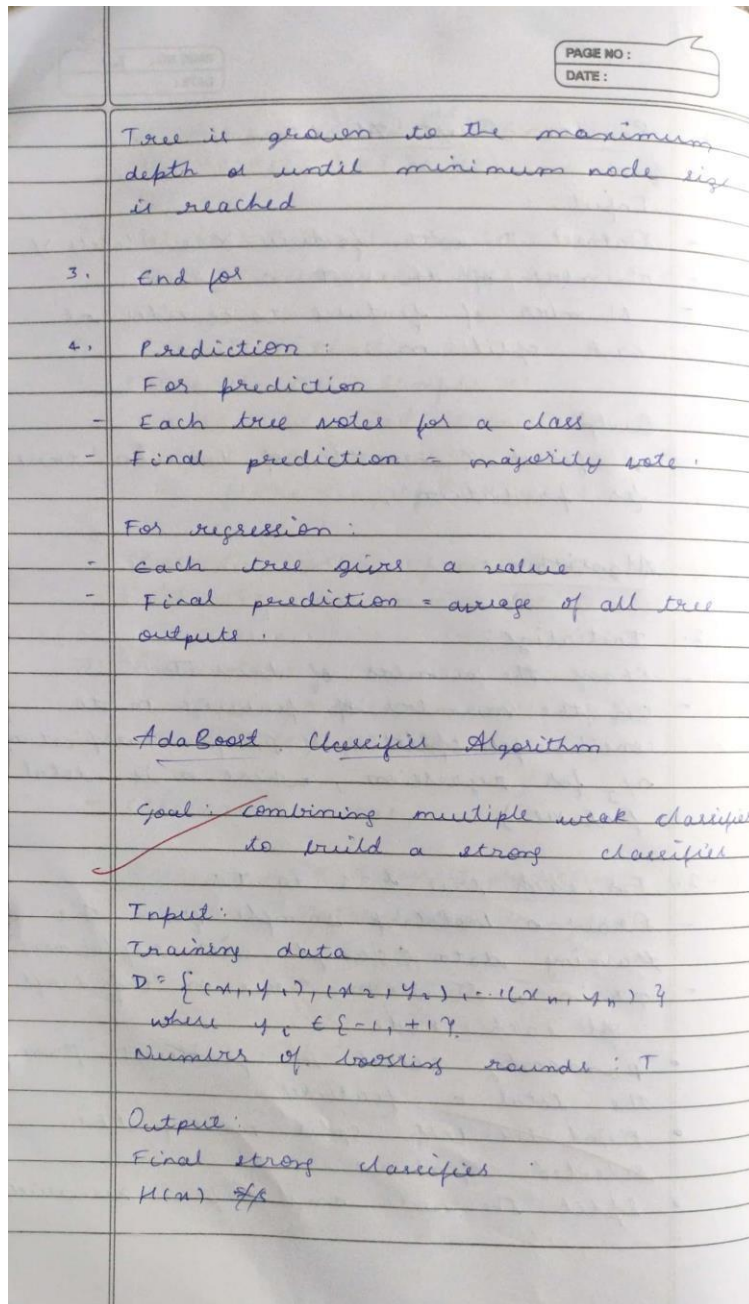 PAGE NO :
DATE :
Tree is grown to the maximum
depth or until minimum node size
is reached
3. End for
4. Prediction :
For prediction
- Each tree votes for a class
- Final prediction = majority vote .
For regression :
- Each tree gives a value
- Final prediction = average of all tree
outputs .
AdaBoost Classifier Algorithm
Goal : Combining multiple weak classifier
to build a strong classifier
Input :
Training data
D = { (x₁, y₁), (x₂, y₂), ... (xₙ, yₙ) }
where yᵢ ∈ {-1, +1}.
Numbers of boosting rounds : T
Output :
Final strong classifier
H(x)